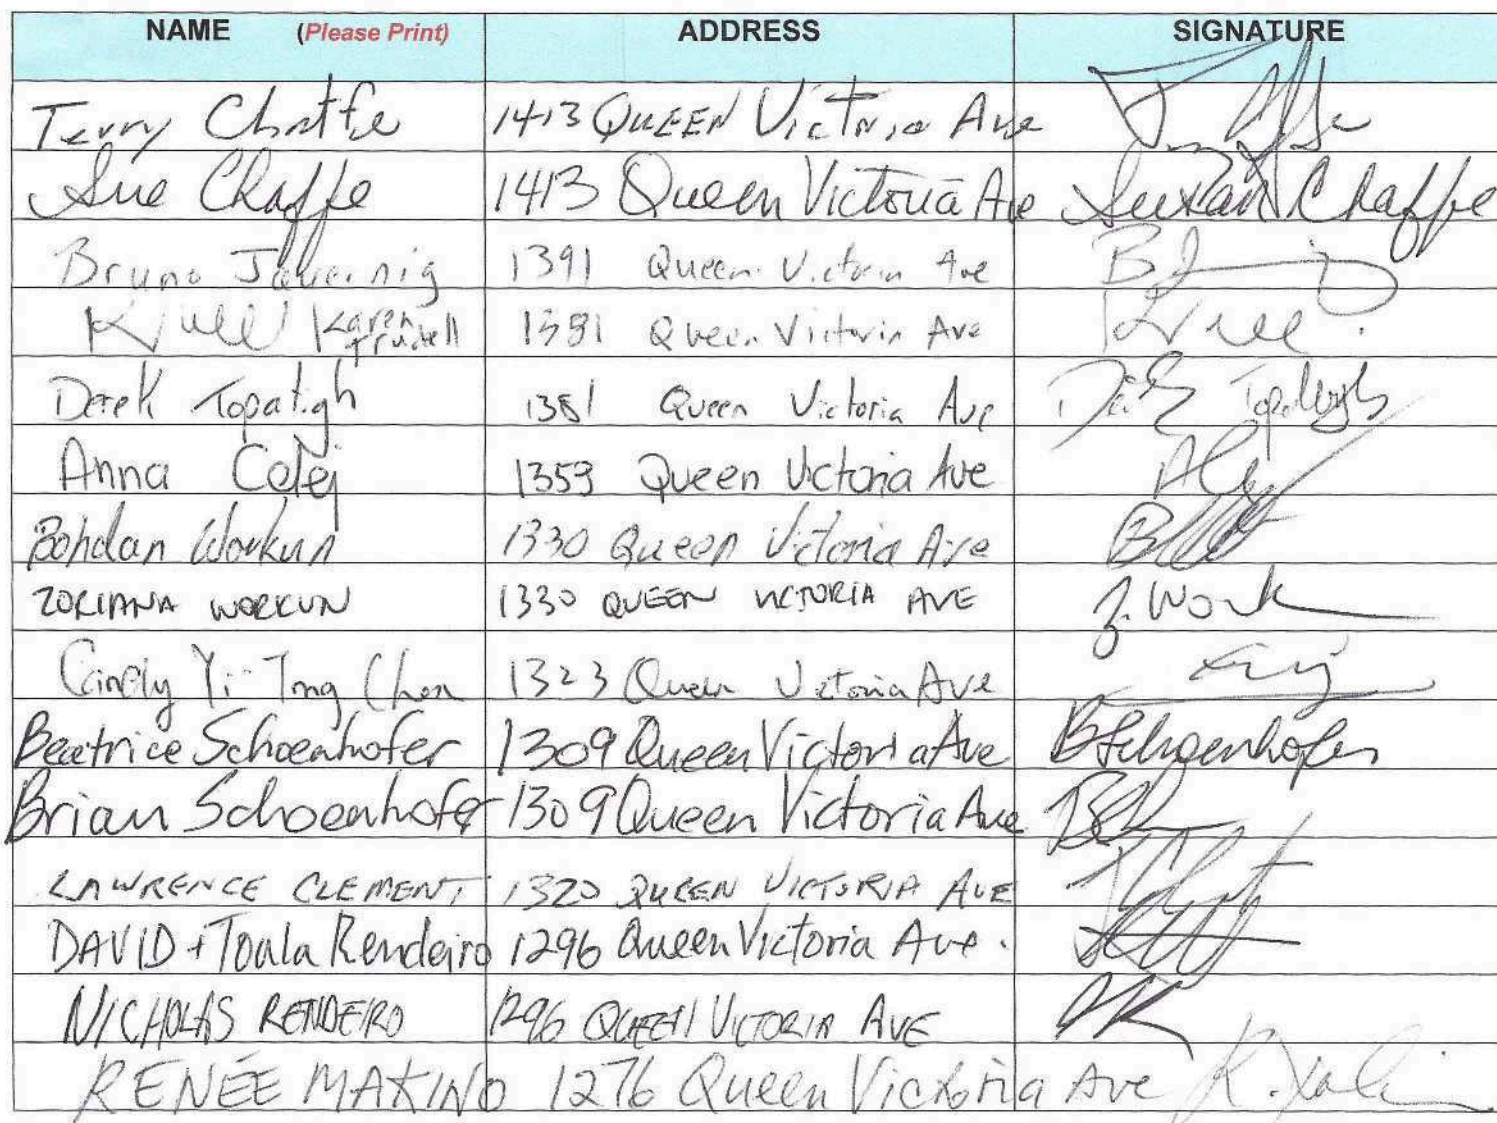 NAME (Please Print) ADDRESS SIGNATURE
Terry Chaffe 1413 QUEEN Victoria Ave
Sue Chaffe 1413 Queen Victoria Ave Susan Chaffe
Bruno Jauernig 1391 Queen Victoria Ave
Karen Trudell 1381 Queen Victoria Ave
Derek Topatigh 1381 Queen Victoria Ave Topatigh
Anna Celej 1359 Queen Victoria Ave
Bohdan Workun 1330 Queen Victoria Ave
ZORIANA WORKUN 1330 QUEEN VICTORIA AVE Z. Work
Cindy Yi Ting Chen 1323 Queen Victoria Ave
Beatrice Schoenhofer 1309 Queen Victoria Ave B Schoenhofer
Brian Schoenhofer 1309 Queen Victoria Ave
LAWRENCE CLEMENT 1320 QUEEN VICTORIA AVE
DAVID + Toula Rendeiro 1296 Queen Victoria Ave.
NICHOLAS RENDEIRO 1296 QUEEN VICTORIA AVE
RENÉE MAKINO 1276 Queen Victoria Ave